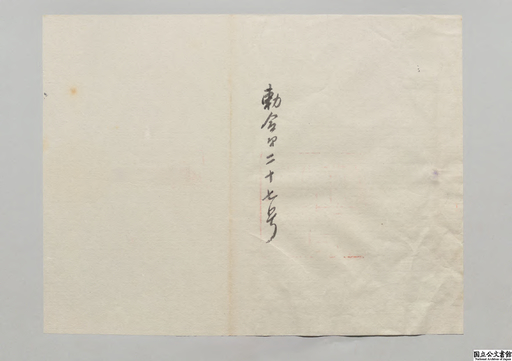 勅令第二十七号
国立公文書館
National Archives of Japan